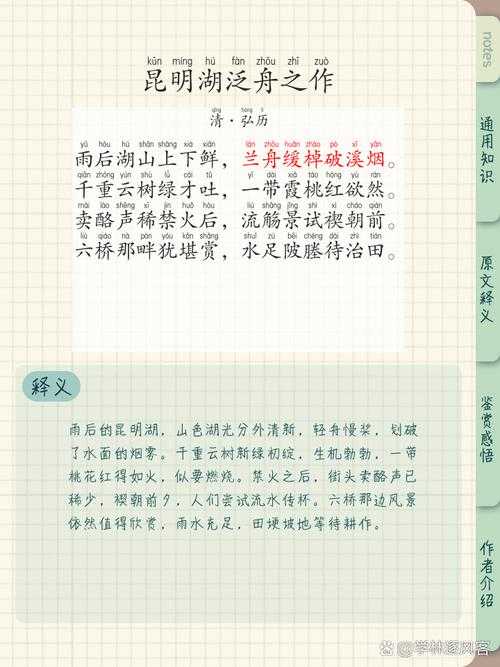 notes
kūn míng hú fàn zhōu zhī zuò
昆明湖泛舟之作
qīng hóng lì
清·弘历
yǔ hòu hú shān shàng xià xiān lán zhōu huǎn zhào pò xī yān
雨后湖山上下鲜，兰舟缓棹破溪烟。
qiān zhòng yún shù lǜ cái tǔ yí dài xiá táo hóng yù rán
千重云树绿才吐，一带霞桃红欲然。
mài lào shēng xī jìn huǒ hòu liú shāng jǐng shì xì cháo qián
卖酪声稀禁火后，流觞景试禊朝前。
liù qiáo nà pàn yóu kān shǎng shuǐ zú bēi chéng dài zhì tián
六桥那畔犹堪赏，水足陂塍待治田。
释义
雨后的昆明湖，山色湖光分外清新，轻舟慢桨，划破
了水面的烟雾。千重云树新绿初绽，生机勃勃，一带
桃花红得如火，似要燃烧。禁火之后，街头卖酪声已
稀少，禊朝前夕，人们尝试流水传杯。六桥那边风景
依然值得欣赏，雨水充足，田埂坡地等待耕作。
通用知识
原文释义
鉴赏感悟
作者介绍
学林逐风客